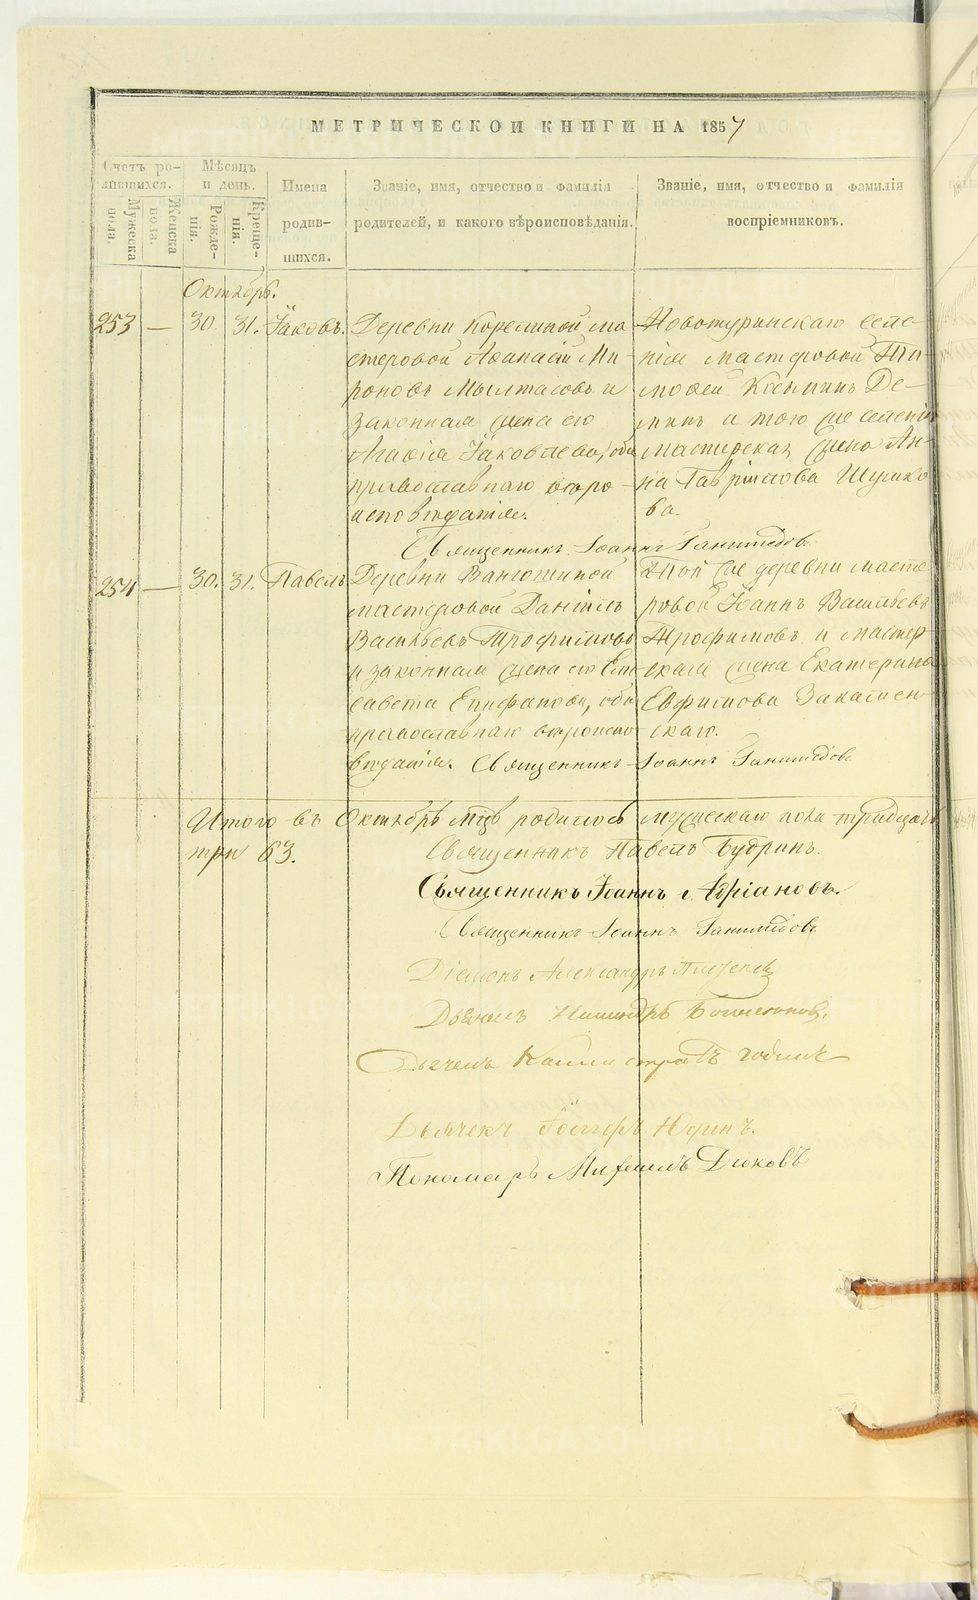 МЕТРИЧЕСКОЙ КНИГИ НА 1857
Счетъ ро-
дившихся.
Мужеска
пола.
Женска
пола.
Мѣсяцъ
и день.
Рожде-
нія.
Креще-
нія.
Имена
родив-
шихся.
Званіе, имя, отчество и фамилія
родителей, и какого вѣроисповѣданія.
Званіе, имя, отчество и фамилія
воспріемниковъ.
Октябрь.
253 — 30. 31. Іаковъ.
Деревни Корелиной ма
стеровой Аѳанасій Ми-
роновъ Мылтасовъ и
законная жена его
Агаѳія Іаковлева, оба
православнаго вѣро-
исповѣданія.
Новотуринскаго селе-
нія мастеровой Ти-
моѳей Косьминъ Де-
минъ и того же селенія
мастерская жена Ан-
на Гавриилова Шумко
ва.
Священникъ Іоаннъ Ганимедовъ
254 — 30. 31. Павелъ
Деревни Вангошиной
мастеровой Даніилъ
Васильевъ Трофимовъ
и законная жена его Ели
савета Епифанова, оба
православнаго вѣроиспо
вѣданія.
той же деревни масте
ровой Іоаннъ Васильевъ
Трофимовъ и мастер
ская жена Екатерина
Евфимова Закамен
скаго.
Священникъ Іоаннъ Ганимедовъ
Итого въ Октябрѣ мцѣ родилось мужескаго пола тридцать
три 63.
Священникъ Павелъ Будринъ.
Священникъ Іоаннъ Адріановъ.
Священникъ Іоаннъ Ганимедовъ
Діаконъ Александръ
Дьячекъ
Дьячекъ
Дьячекъ Юринъ.
Пономарь Михаилъ Дюковъ
METRIKI.GASO-URAL.RU